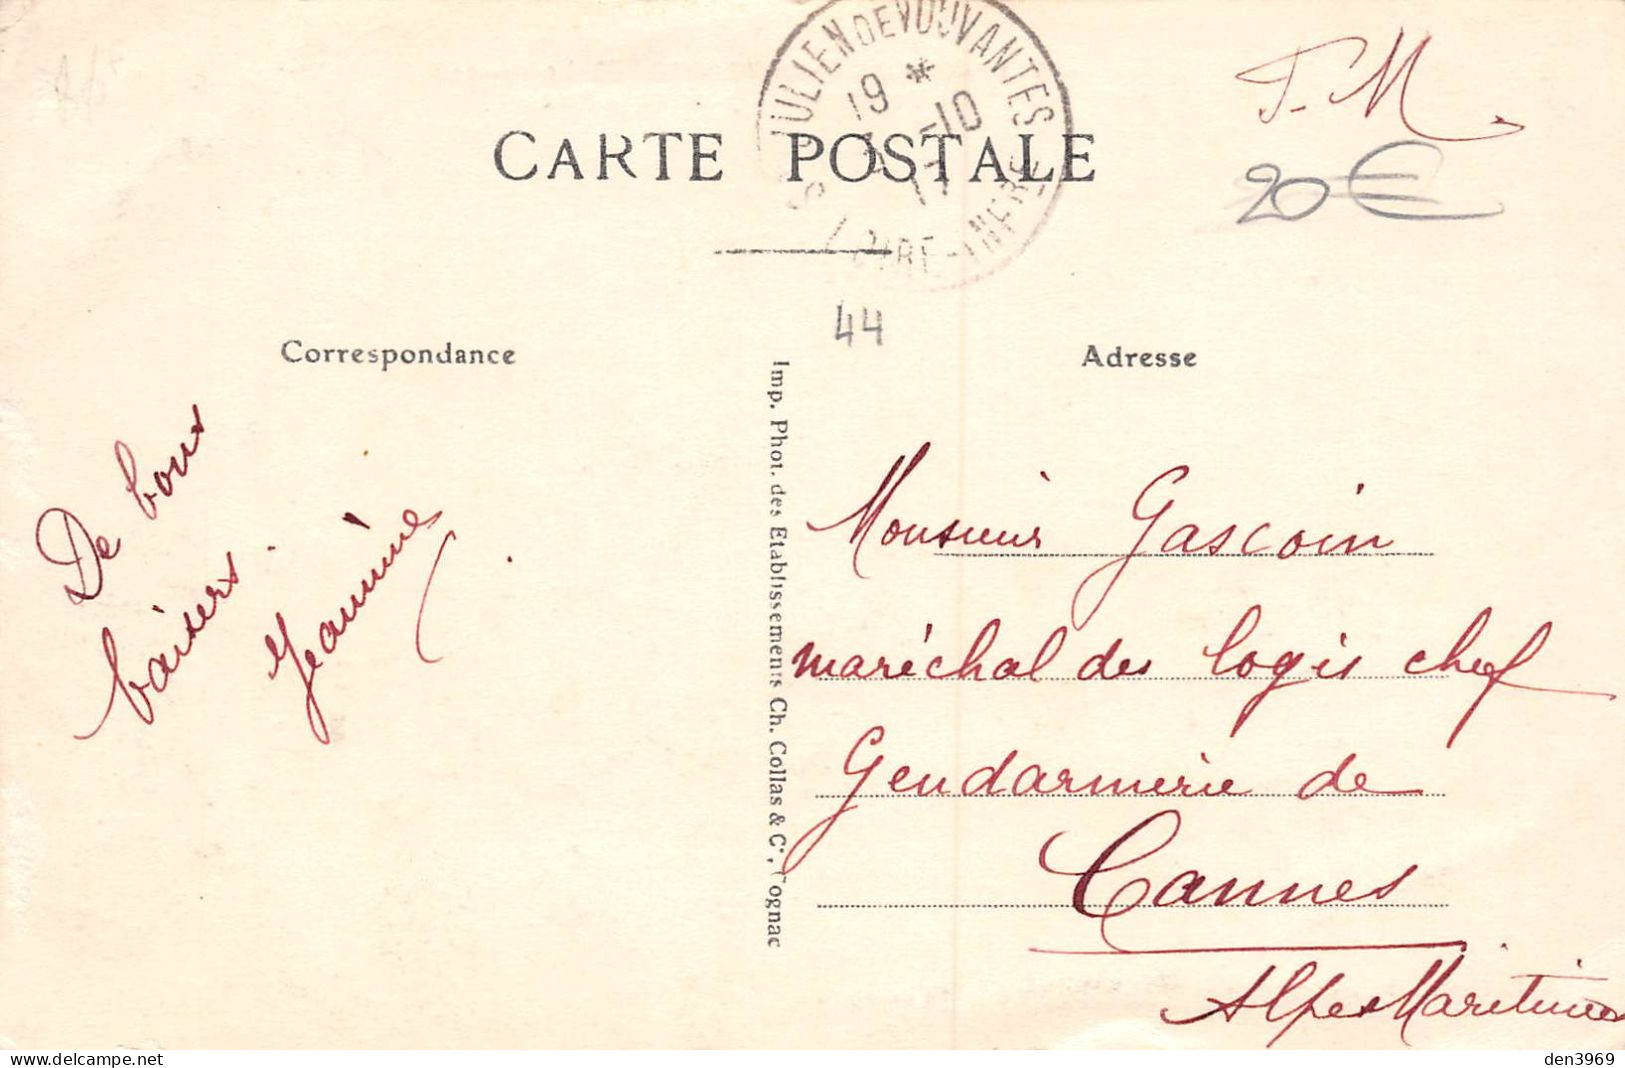 JULIEN DE VOUVANTES
19 *
-10
LOIRE-INFRE
F-M.
20€
CARTE POSTALE
44
Correspondance
Adresse
De bons
baisers.
Jeannine
Imp. Phot. des Etablissements Ch. Collas & Cie, Cognac
Monsieur Gascoin
maréchal des logis chef
Gendarmerie de
Cannes
Alpes Maritimes
delcampe.net
den3969